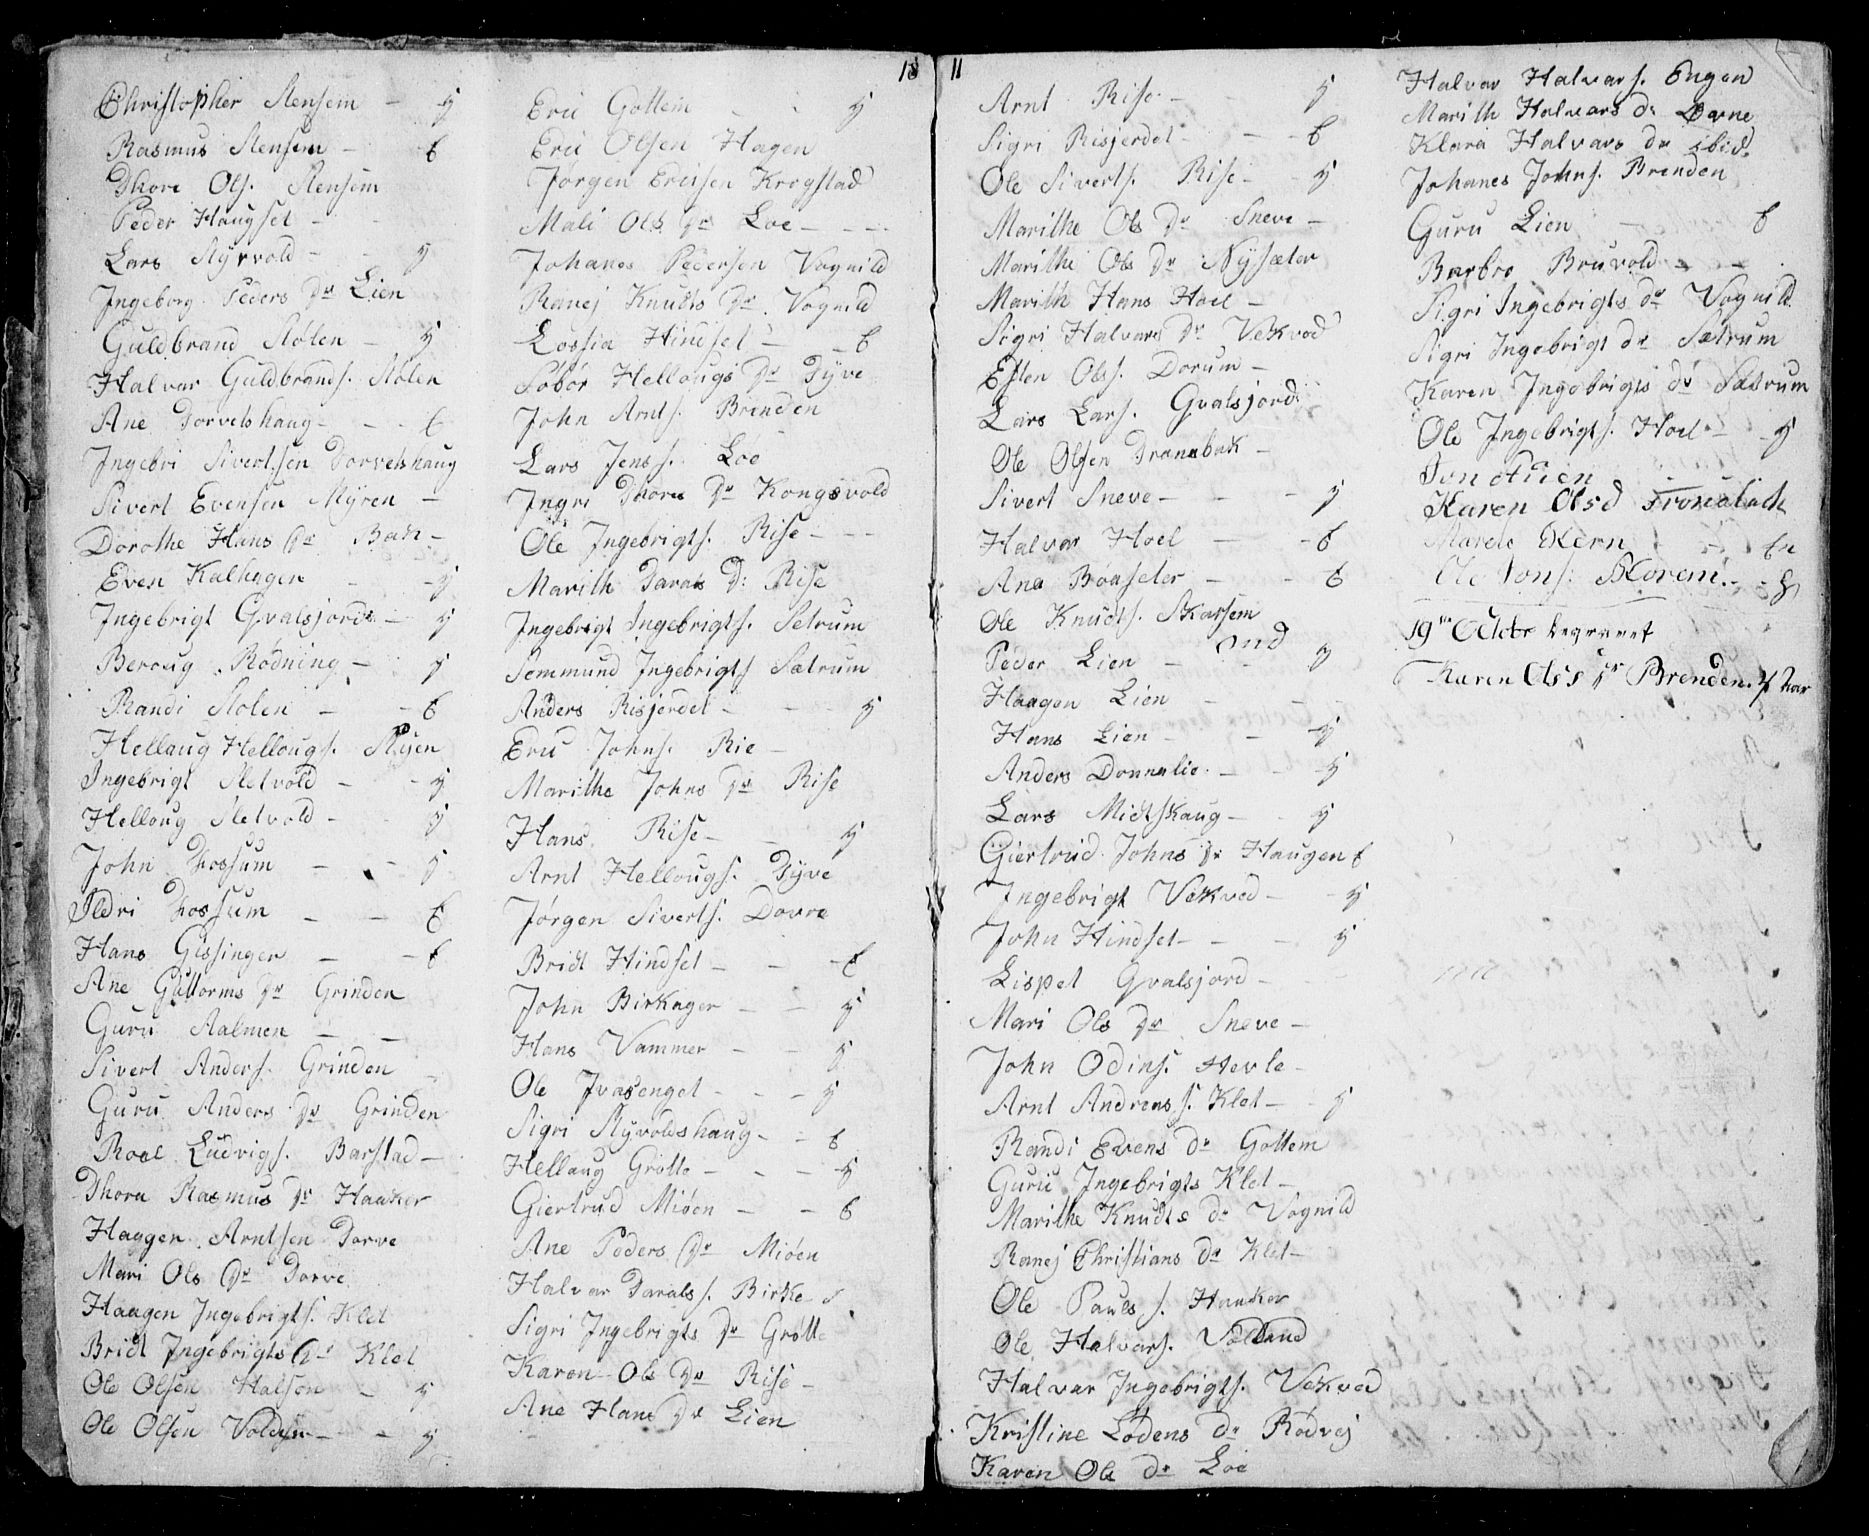 18
Christopher Stensem - y
Rasmus Stensem - t
Thore Ols. Stensem
Peder Haugset -
Lars Styrvold - - y
Ingeborg Peders Dr Lien
Guldbrand Stølen - y
Halvar Guldbrands. Stølen
Ane Dorvetshaug - - t
Ingebri Sivertsen Dorvetshaug
Sivert Evensen Myren -
Dorothe Hans Dr Bak -
Even Kalhagen - - y
Ingebrigt Gvalsjord - y
Beroug Rødning - y
Randi Stølen - - t
Hellaug Hellougs. Stuen
Ingebrigt Sletvold - - y
Helloug Sletvold - y
John Fossum - - y
Ildri Fossum - - t
Hans Gissinger - - t
Ane Guttorms Dr Grinden
Guru Aalmen - -
Sivert Anders. Grinden -
Guru Anders Dr Grinden
Roal Ludvigs. Barstad -
Thora Rasmus Dr Haaker
Haagen Arntsen Dorve
Mari Ols Dr Dorve
Haagen Ingebrigts. Klet
Bridt Ingebrigts Dr Klet
Ole Olsen Halsen - y
Ole Olsen Volden - - y
Eric Gottem - - y
Eric Olsen Hagen
Jørgen Ericsen Krogstad
Mali Ols Dr Loe - - -
Johanes Pedersen Vognild
Ranej Knudts Dr Vognild
Lossia Hindset - - t
Søbør Hellougs Dr Dyve
John Arnts. Brenden
Lars Jens s. Loe
Ingri Thore Dr Kongsvold
Ole Ingebrigts. Rise - - -
Marith Darals D: Rise
Ingebrigt Ingebrigts. Setrum
Semmund Ingebrigts Sætrum
Anders Risjerdet - - - y
Eric Johns. Rie -
Marithe Johns Dr Rise
Hans Rise - - y
Arnt Hellougs. Dyve
Jørgen Siverts. Dovre
Bridt Hindset - - - t
John Birkager - - y
Hans Vammer - - y
Ole Ivasenget - - - y
Sigri Styvoldshaug - - t
Hellaug Grøtte - - - y
Giertrud Miøen - - t
Ane Peders Dr Miøen
Halvar Darals s. Birke
Sigri Ingebrigts Dr Grøtte
Karen Ols Dr Rise -
Ane Hans Dr Lien
11
Arnt Rise - - y
Sigri Risjerdet - - t
Ole Siverts. Rise - - y
Marithe Ols Dr Sneve -
Marithe Ols Dr Nysæter
Marith Hans Hoel -
Sigri Halvars Dr Vekved
Esten Ols s. Dorum -
Lars Lars s. Gvalsjord
Ole Olsen Dranabak -
Sivert Sneve - - - y
Halvar Hoel - - t
Ane Bøaseter - - t
Ole Knudts. Skarsem
Peder Lien - - y
Haagen Lien - - -
Hans Lien - - y
Anders Donnalie - - y
Lars Midtskaug - - y
Giertrud Johns Dr Haugen t
Ingebrigt Vekved - - y
John Hindset - - - y
Lispet Gvalsjord -
Mari Ols Dr Sneve -
John Odins. Hevle -
Arnt Andreas s. Klet - - y
Randi Evens Dr Gottem
Guru Ingebrigts Klet -
Marithe Knudts Dr Vognild
Ranej Christians Dr Klet -
Ole Pauls s. Haaker
Ole Halvars.
Halvar Ingebrigts. Vekved
Kristine Lodens Dr Rødvej
Karen Ols Dr Loe
Halvar Halvars. Engen
Marith Halvars D:
Klara Halvars Dr ibid.
Johanes Johns. Brenden
Guru Lien - t
Barbro Bruvold - -
Sigri Ingebrigts Dr Vognild
Sigri Ingebrigt Dr Sætrum
Karen Ingebrigts Dr Sætrum
Ole Ingebrigts. Hoel - y
Karen Olsd
Ole Jons:
19de Octobr begravet
Karen Ols Dr Brenden